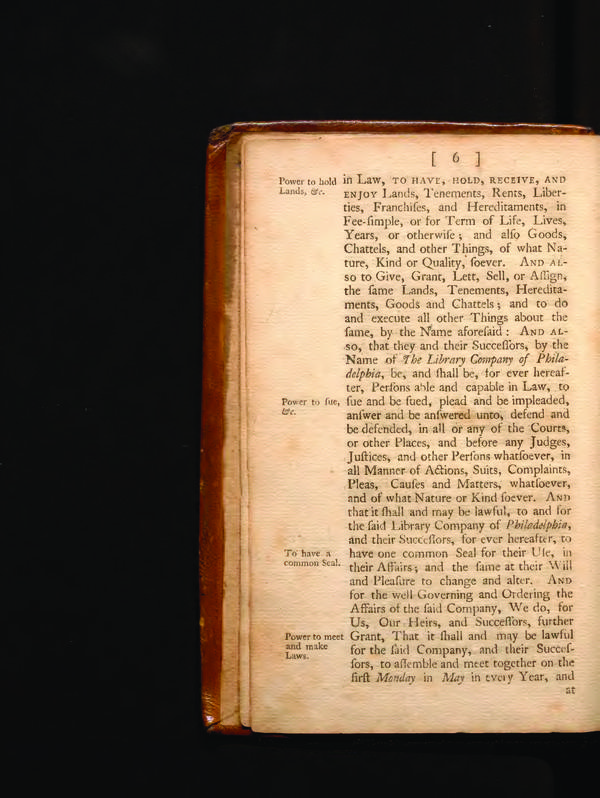 [ 6 ]
Power to hold
Lands, &c.
in Law, TO HAVE, HOLD, RECEIVE, AND
ENJOY Lands, Tenements, Rents, Liber-
ties, Franchiſes, and Hereditaments, in
Fee-ſimple, or for Term of Life, Lives,
Years, or otherwiſe; and alſo Goods,
Chattels, and other Things, of what Na-
ture, Kind or Quality, ſoever. AND AL-
so to Give, Grant, Lett, Sell, or Aſſign,
the ſame Lands, Tenements, Heredita-
ments, Goods and Chattels; and to do
and execute all other Things about the
ſame, by the Name aforeſaid: AND AL-
so, that they and their Succeſſors, by the
Name of The Library Company of Phila-
delphia, be, and ſhall be, for ever hereaf-
ter, Perſons able and capable in Law, to
Power to ſue,
&c.
ſue and be ſued, plead and be impleaded,
anſwer and be anſwered unto, defend and
be defended, in all or any of the Courts,
or other Places, and before any Judges,
Juſtices, and other Perſons whatſoever, in
all Manner of Actions, Suits, Complaints,
Pleas, Cauſes and Matters, whatſoever,
and of what Nature or Kind ſoever. AND
that it ſhall and may be lawful, to and for
the ſaid Library Company of Philadelphia,
and their Succeſſors, for ever hereafter, to
To have a
common Seal.
have one common Seal for their Uſe, in
their Affairs; and the ſame at their Will
and Pleaſure to change and alter. AND
for the well Governing and Ordering the
Affairs of the ſaid Company, We do, for
Us, Our Heirs, and Succeſſors, further
Power to meet
and make
Laws.
Grant, That it ſhall and may be lawful
for the ſaid Company, and their Succeſ-
ſors, to aſſemble and meet together on the
firſt Monday in May in every Year, and
at